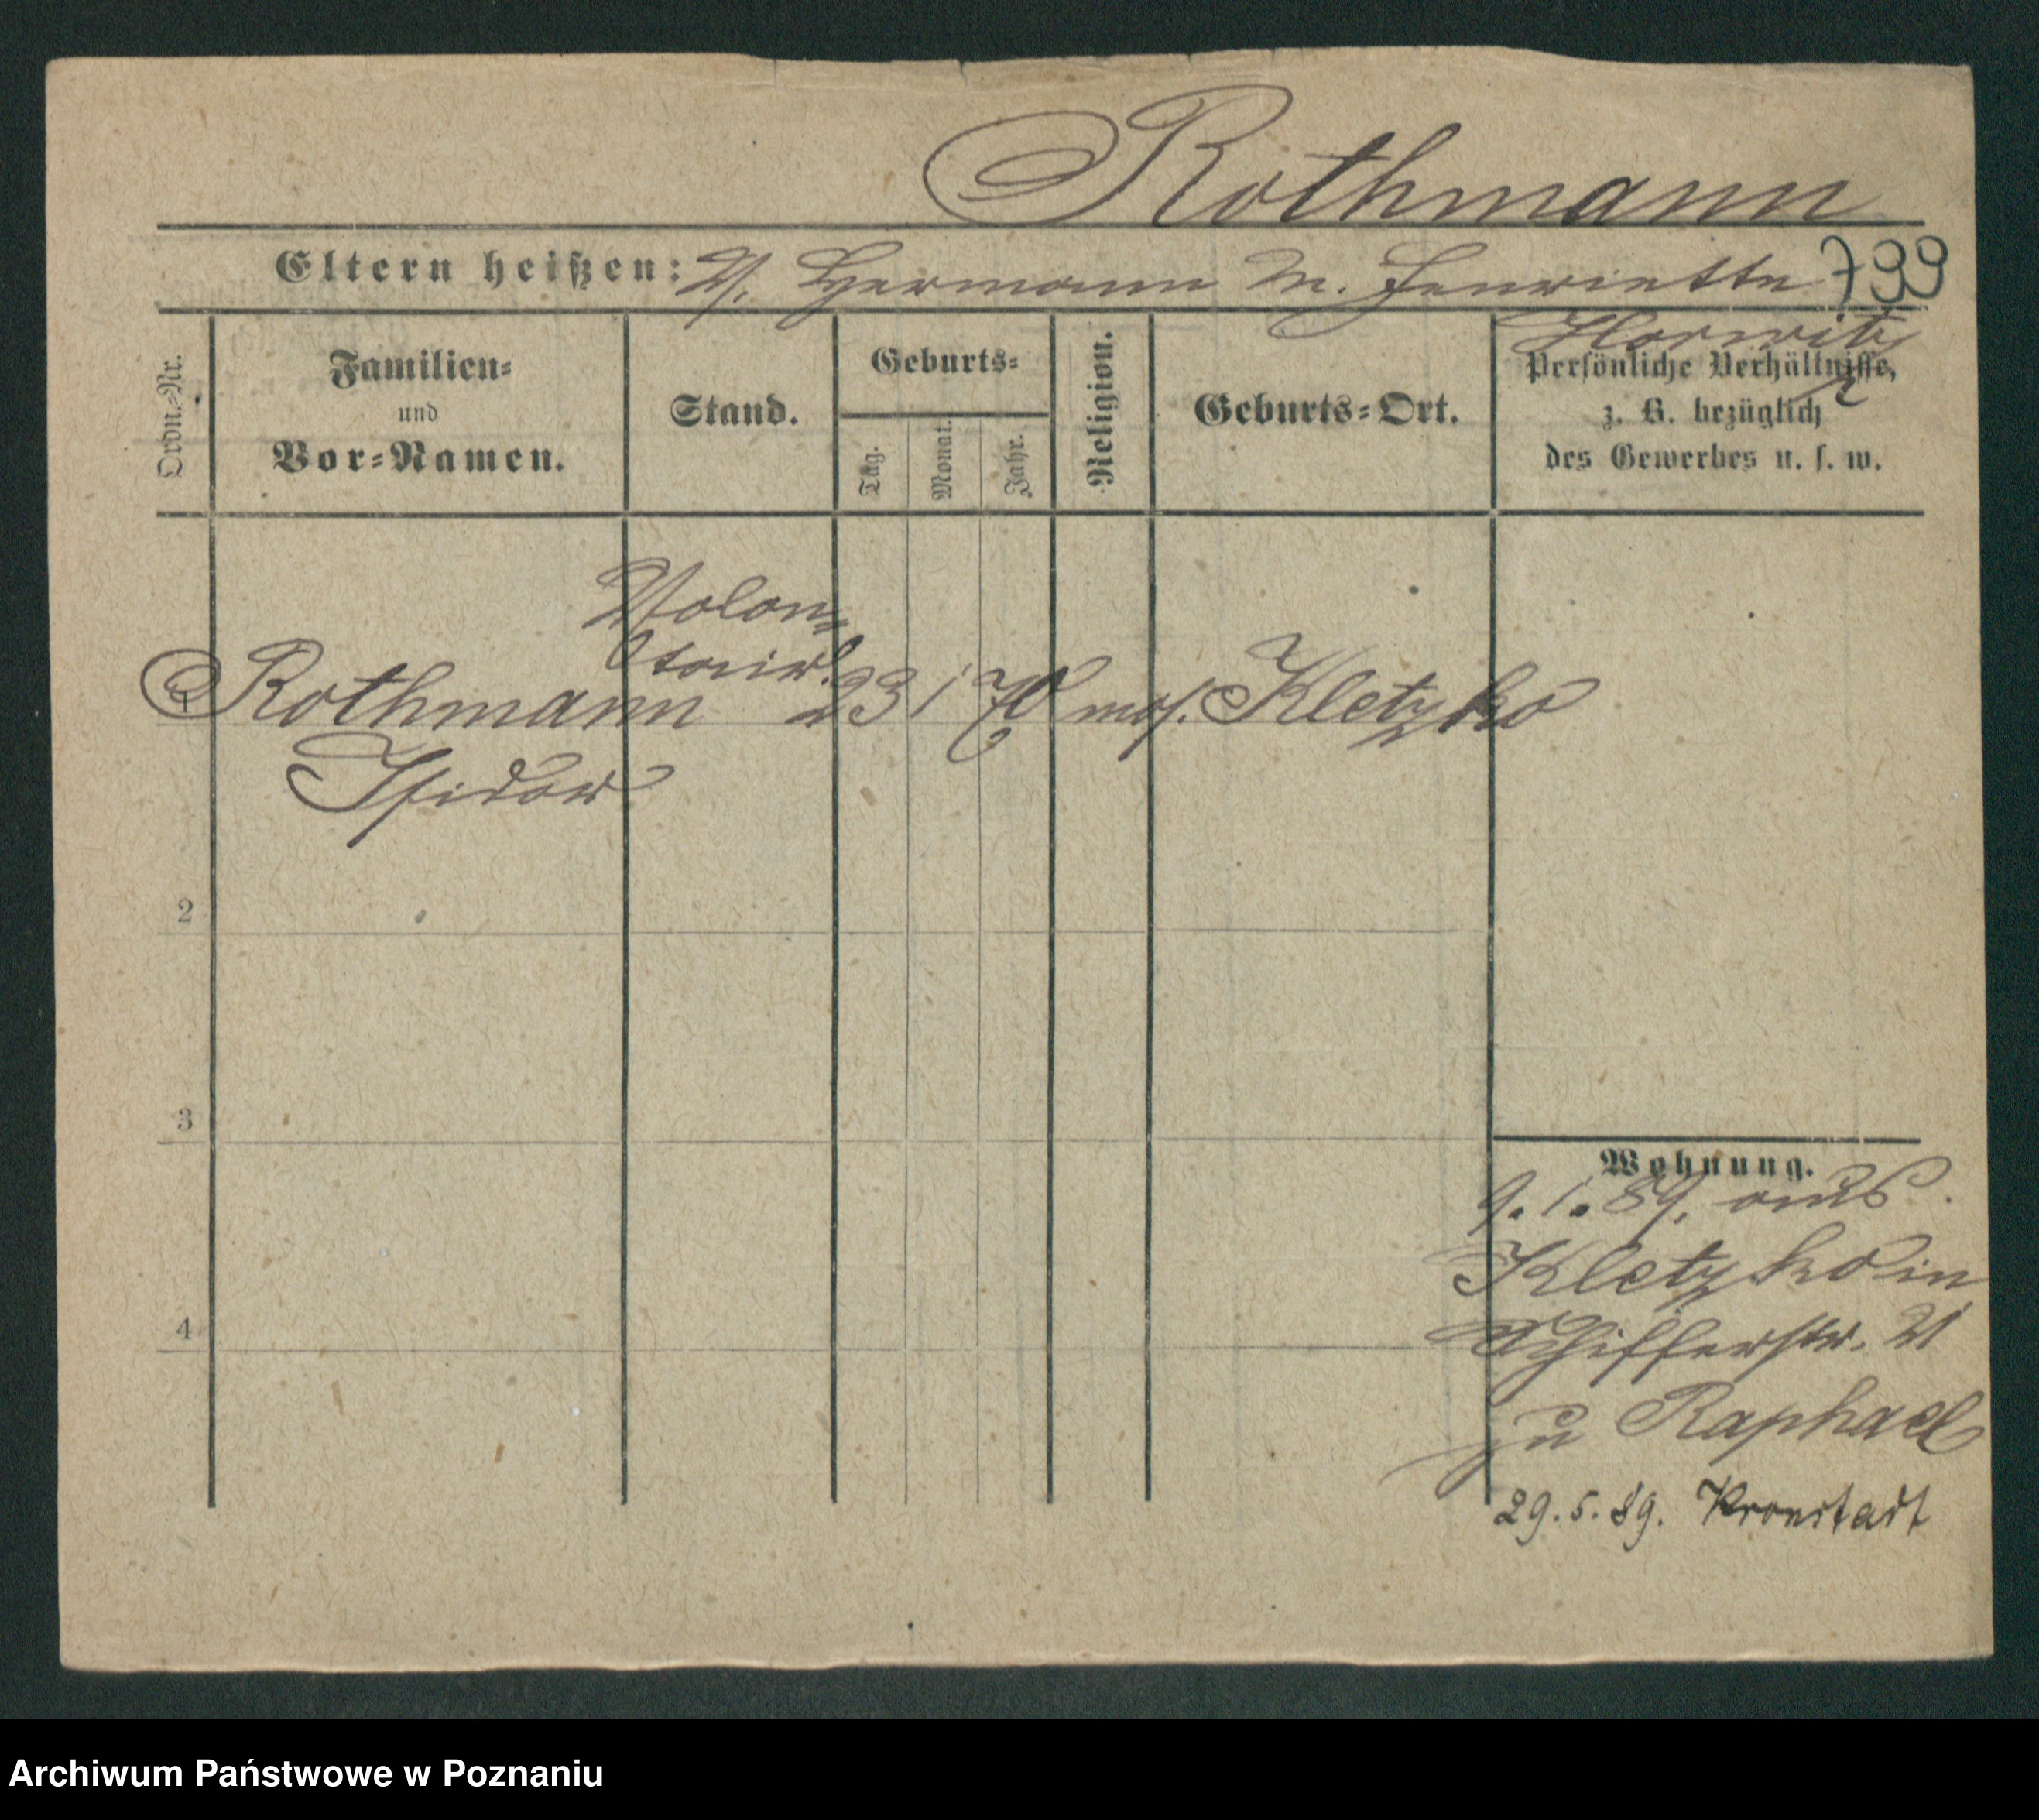 Rothmann
Eltern heißen: V. Hermann M. Henriette 799
Horwitz
Ordn.-Nr.
Familien-
und
Vor-Namen.
Stand.
Geburts-
Tag.
Monat.
Jahr.
Religion.
Geburts-Ort.
Persönliche Verhältnisse,
z. B. bezüglich
des Gewerbes u. s. w.
Volon-
tair
1 Rothmann 23 1 70 mos. Kletzko
Isidor
2
3
4
Wohnung.
9. 1. 89. aus
Kletzko in
Schifferstr. 21
zu Raphael
29. 5. 89. Kronstadt
Archiwum Państwowe w Poznaniu